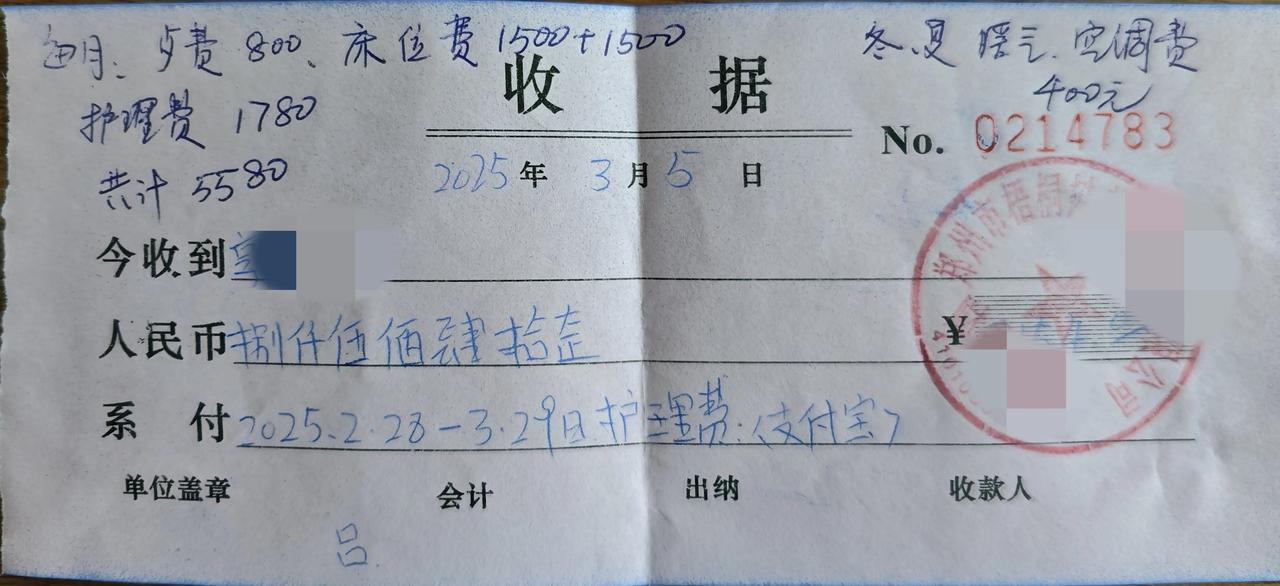 每月、歺费 800、床位费 1500+1500
护理费 1780
共计 5580
冬、夏 暖气、空调费
400元
收 据
No. 0214783
2025年 3月5日
今收到
人民币捌仟伍佰肆拾走
¥
系 付2025.2.28-3.29日护理费.(支付宝)
郑州市梧桐
公司
单位盖章 会计 出纳 收款人
吕